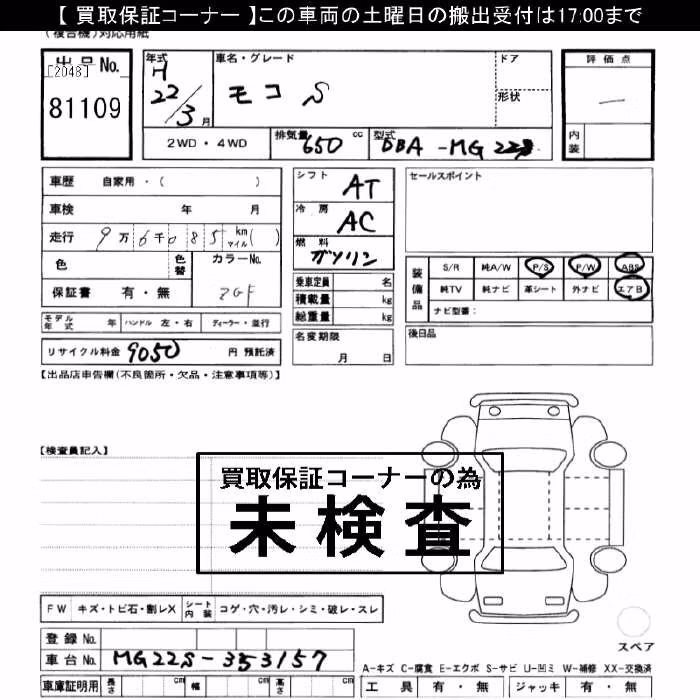 【 買取保証コーナー 】この車両の土曜日の搬出受付は17:00まで
(複合機)対応用紙
出品No. [2048]
81109
年式 H 22/3 月
車名・グレード モコ S
ドア
形状
評価点 一
内装
2WD・4WD
排気量 650 cc
型式 DBA-MG22S
車歴 自家用・( )
車検 年 月
走行 9万6千085 km マイル( )
色 色替 カラーNo.
保証書 有・無 ZGF
モデル年式 年 ハンドル 左・右 ディーラー・並行
リサイクル料金 9050 円 預託済
シフト AT
冷房 AC
燃料 ガソリン
乗車定員 名
積載量 kg
総重量 kg
名変期限
月 日
セールスポイント
装備品
S/R 純A/W P/S P/W ABS
純TV 純ナビ 革シート 外ナビ エアB
ナビ型番:
後日品
【出品店申告欄(不良箇所・欠品・注意事項等)】
【検査員記入】
買取保証コーナーの為
未検査
FW キズ・トビ石・割レX シート内装 コゲ・穴・汚レ・シミ・破レ・スレ
登録No.
車台No. MG22S-353157
車庫証明用 長さ cm 幅 cm 高さ cm
スペア
A-キズ C-腐食 E-エクボ S-サビ U-凹ミ W-補修 XX-交換済
工具 有・無 ジャッキ 有・無